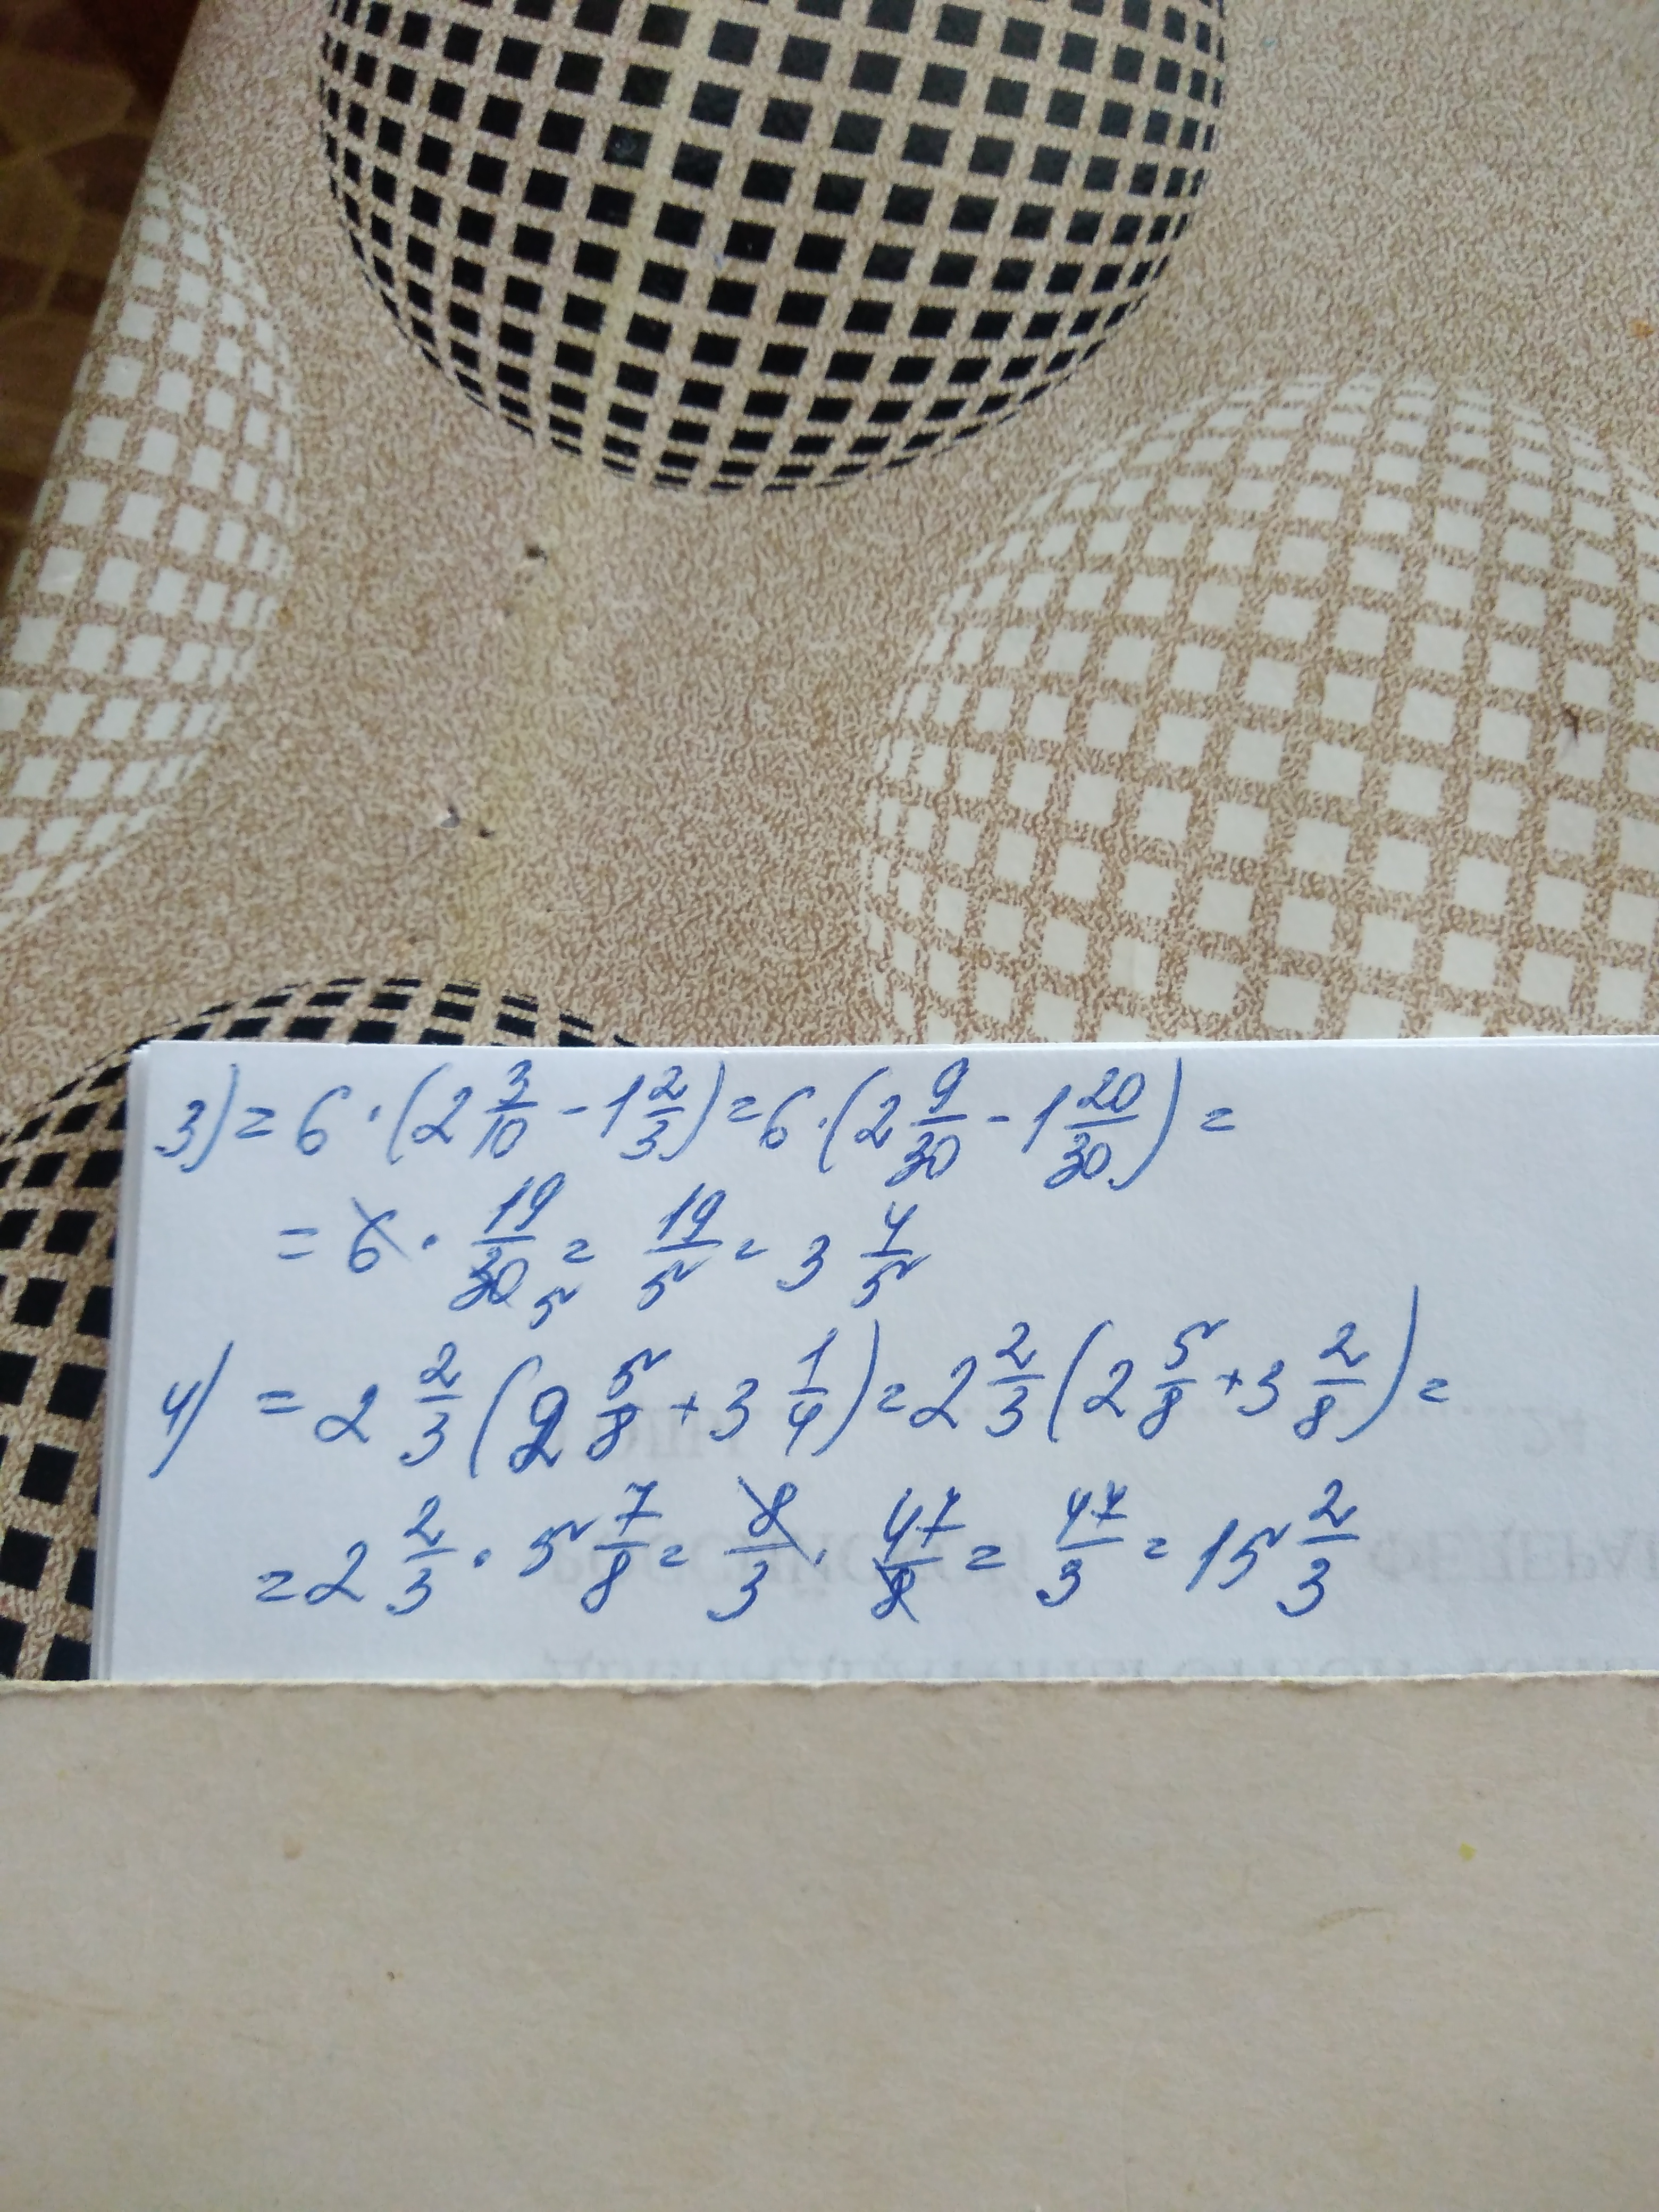 3) = 6 · (2 3/10 - 1 2/3) = 6 · (2 9/30 - 1 20/30) =
= 6 · 19/30 5 = 19/5 = 3 4/5
4) = 2 2/3 (2 5/8 + 3 1/4) = 2 2/3 (2 5/8 + 3 2/8) =
= 2 2/3 · 5 7/8 = 8/3 · 47/8 = 47/3 = 15 2/3